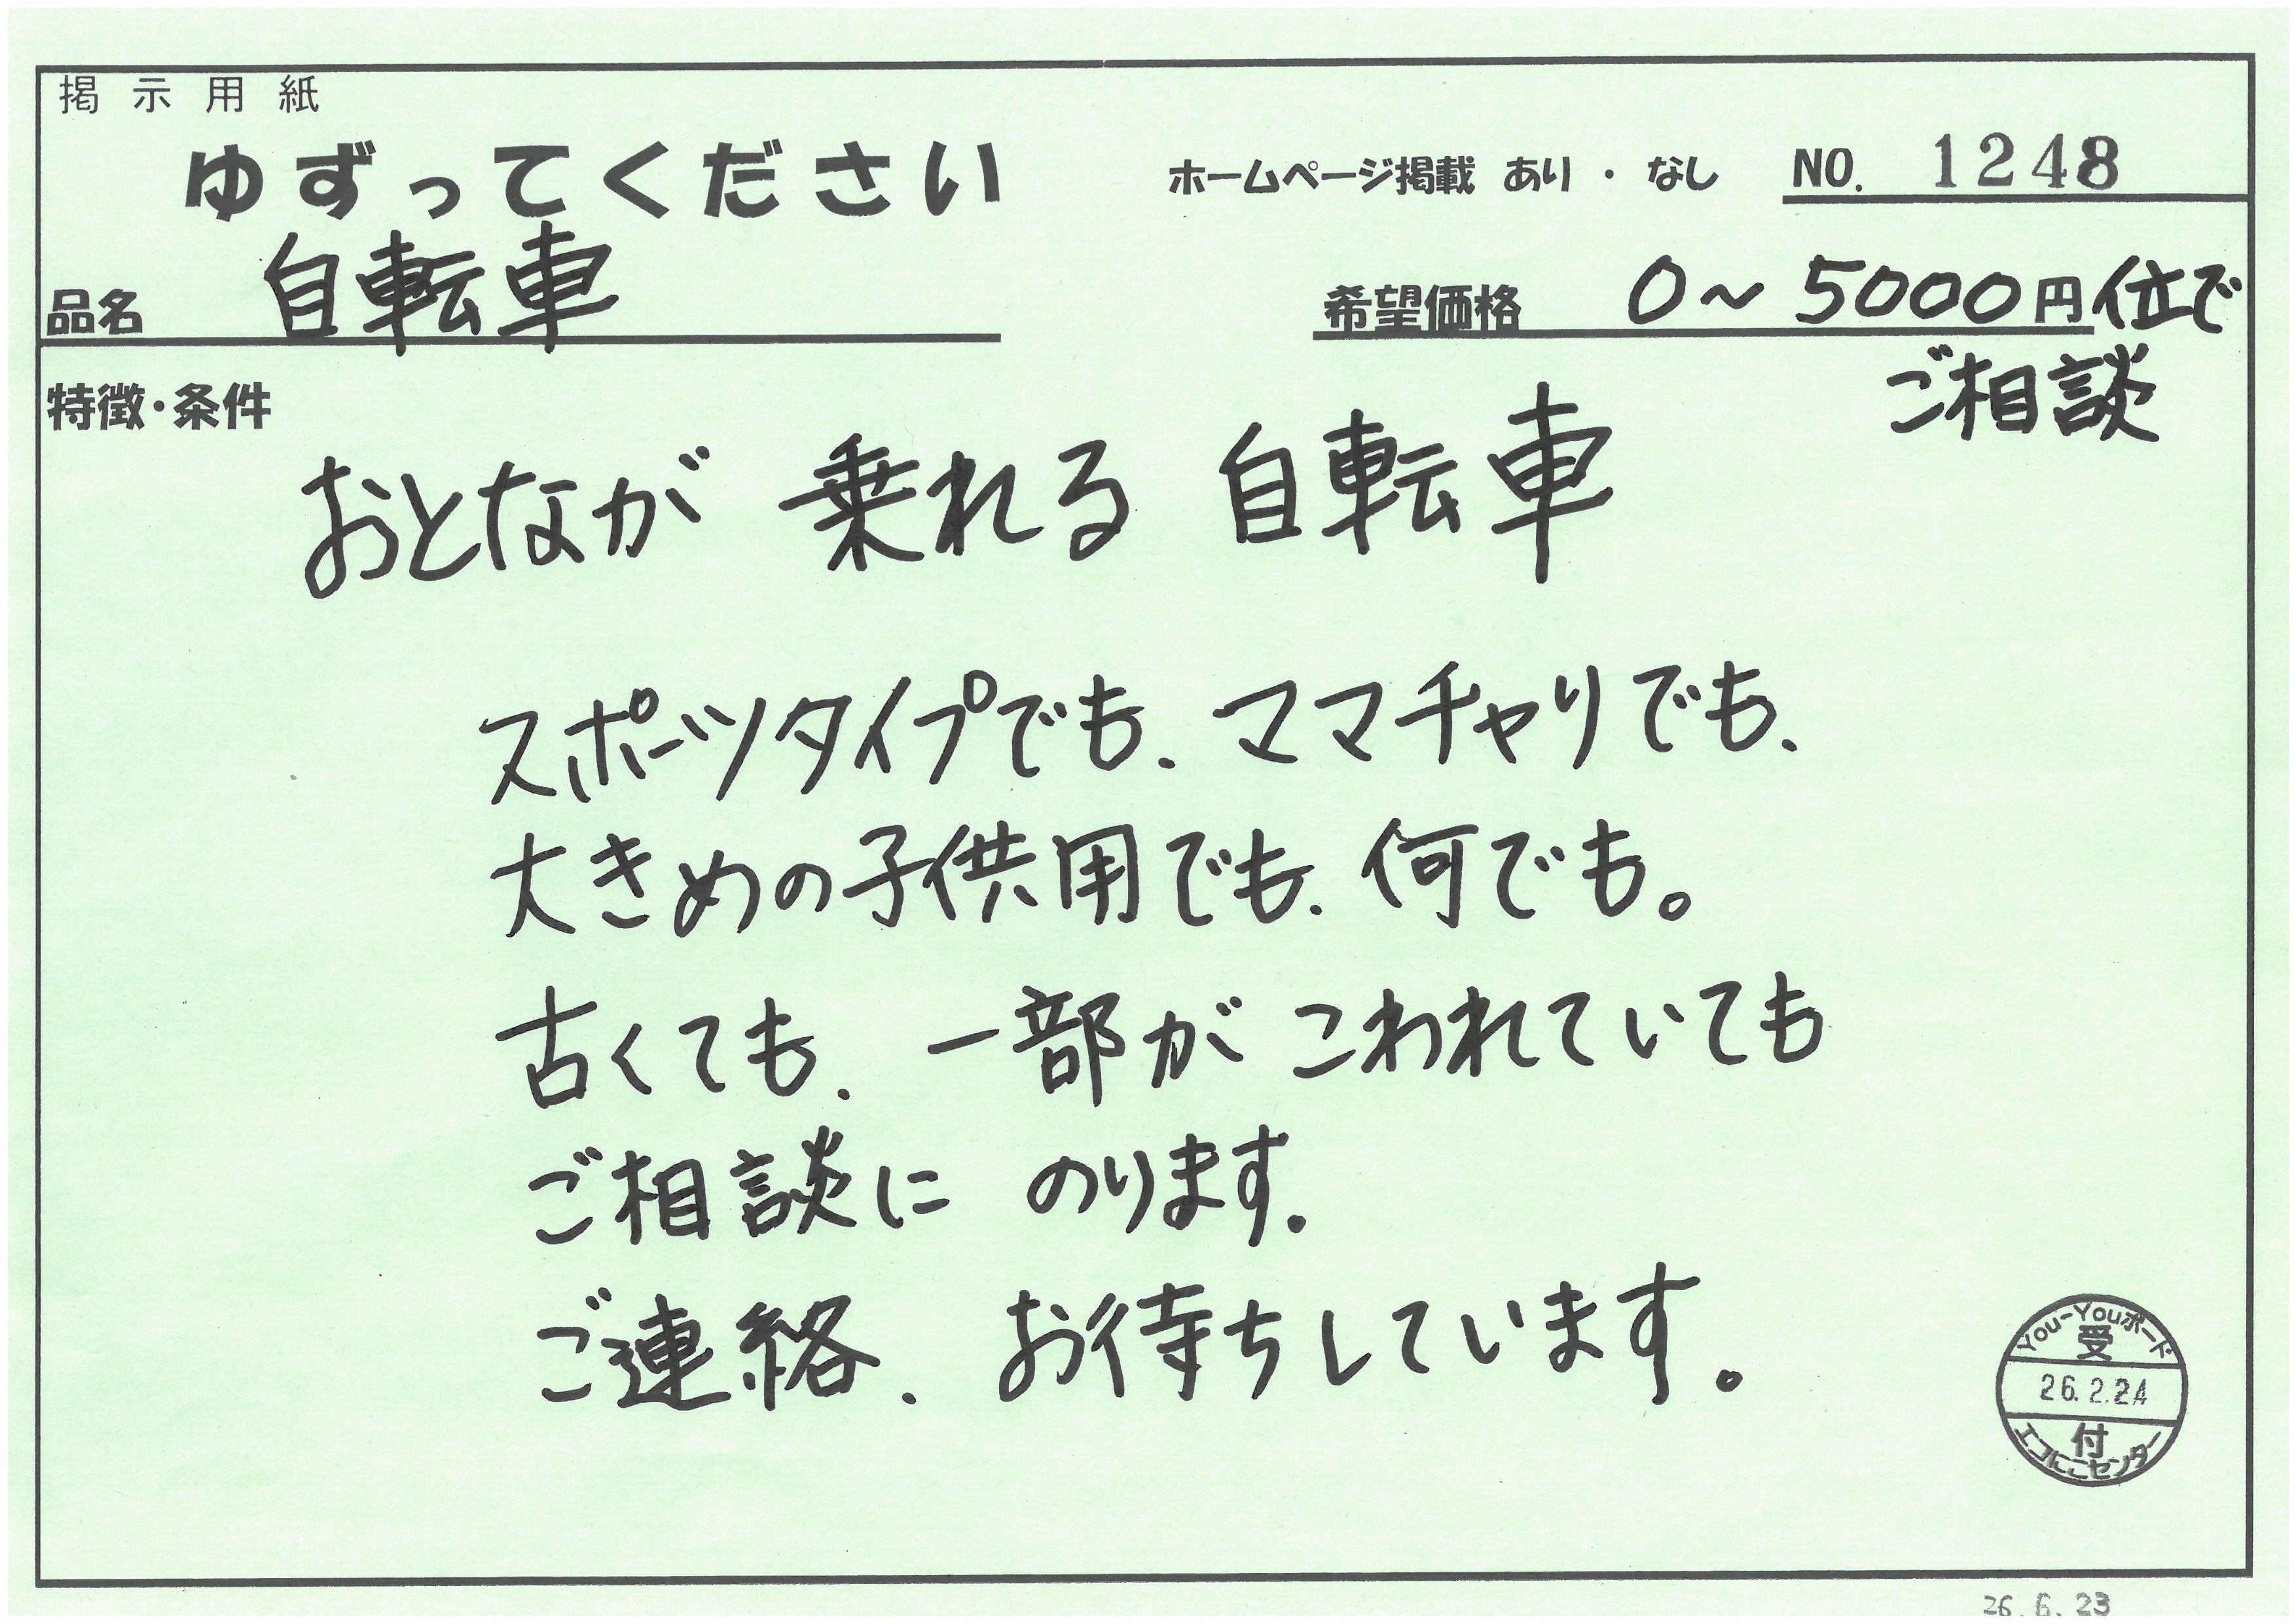 掲示用紙
ゆずってください ホームページ掲載 あり ・ なし NO. 1248
品名 自転車 希望価格 0～5000円位で
ご相談
特徴・条件
おとなが 乗れる 自転車
スポーツタイプでも、ママチャリでも、
大きめの子供用でも、何でも。
古くても、一部が こわれていても
ご相談に のります。
ご連絡、お待ちしています。
You-Youボード
受
26.2.24
付
エコにこセンター
26.6.23